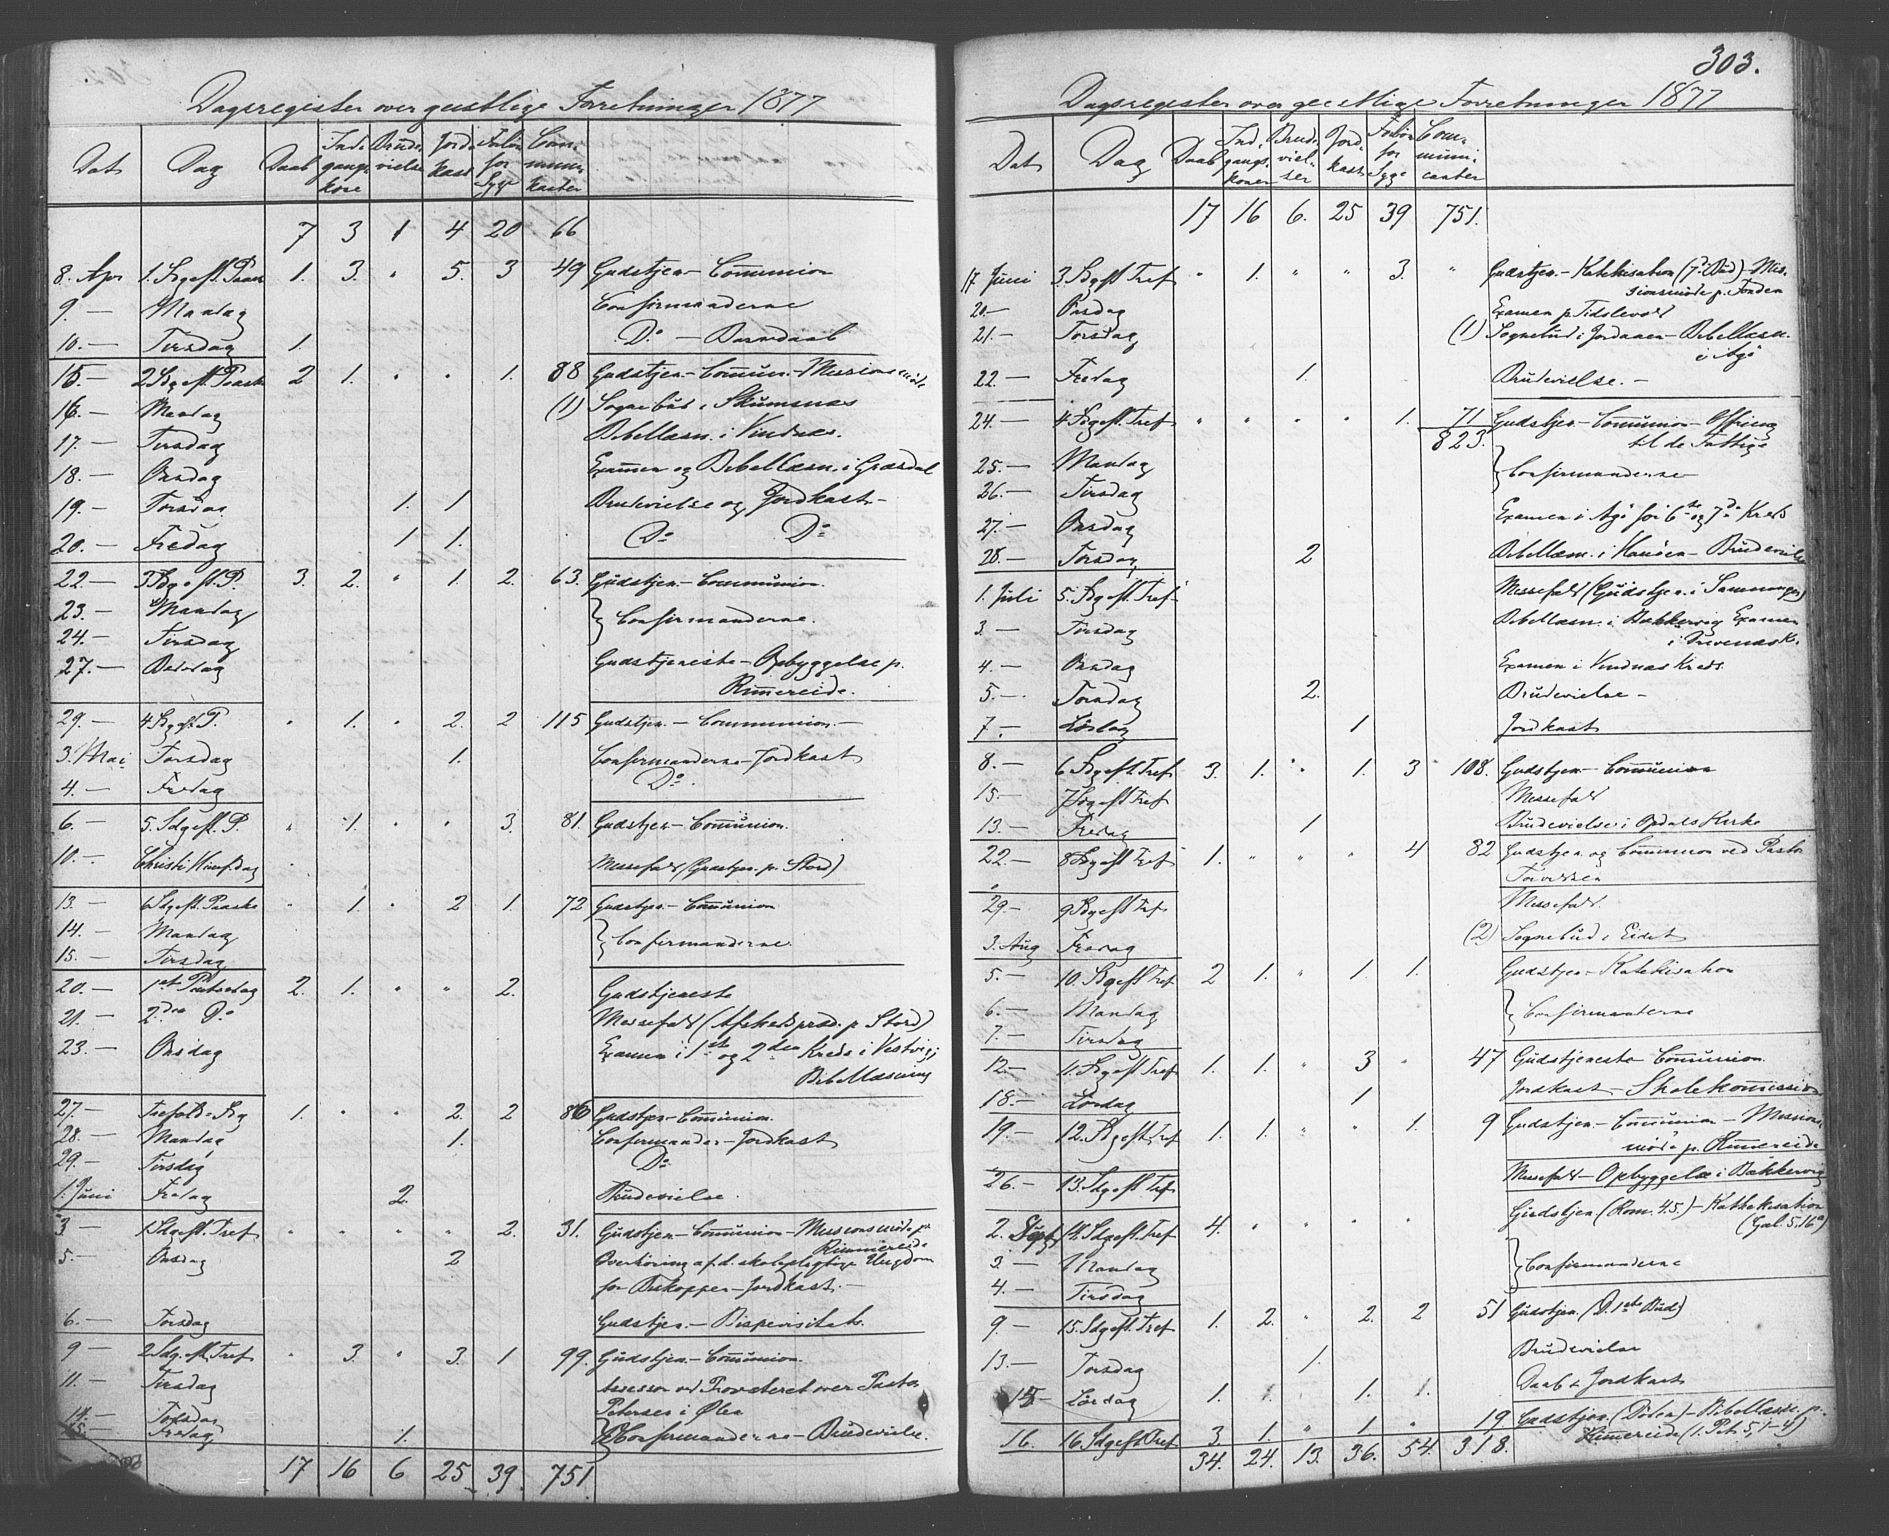 Dagsregister over geistlige Forretninger 1877
Dat Dag Daab Indgangskone Brudevielse Jordkast Forbøn for Syge Communikanter
7 3 1 4 20 66
8. Apr 1. Sdgeft. Paask 1. 3. " 5. 3 49 Gudstjen - Communion
9. — Mandag Confirmanderne
10. — Tirsdag 1. Do — Barnedaab
15. — 2 Sdgeft. Paaske 2 1. " " 1. 88 Gudstjen - Commun. - Missionsmøde
16. — Mandag (1) Sognebud i Skumsnæs
17. — Tirsdag Bibellæsn. i Vindnæs.
18. — Onsdag Examen og Bibellæsn. i Græsdal
19. — Torsdag 1. 1. Brudevielse og Jordkast -
20. — Fredag 1 1. Do Do
22. — 3 Sdgeft. P. 3. 2. " 1. 2. 63. Gudstjen - Communion.
23. — Mandag } Confirmanderne.
24. — Tirsdag
27. — Bededag Gudstjeneste - Opbyggelse p. Rimereide.
29. — 4 Sdgeft. P. " 1. " 2. 2 115 Gudstjen. - Communion. -
3. Mai Torsdag 1. Confirmanderne - Jordkast
4. — Fredag Do.
6. — 5. Sdgeft. P. " 1. " " 3. 81. Gudstjen - Communion.
10. — Christi Himf.dag Messefald (Gudstjen. p. Stord)
13. — 6 Sdgeft. Paaske " 1. " 2 1. 72 Gudstjen - Communion
14. — Mandag } Confirmanderne.
15. — Tirsdag
20. — 1ste Pintsedag 2. 1. " " 2. Gudstjeneste
21. — 2den Do Messefald (Afskedspræd. p. Stord)
23. — Onsdag Examen i 1ste og 2den Kreds i Vestvig;
Bibellæsning
27. — Trefold. Sdg 1. " " 2. 2 86 Gudstjen - Communion.
28. — Mandag 1. Confirmander - Jordkast
29. — Tirsdag Do.
1. Juni Fredag 2. Brudevielse.
3 — 1 Sdgeft. Tref " " " " 2. 31. Gudstjen - Communion - Missionsmøde p.
Rimereide
5. — Onsdag 2 Overhøring af d. skolepligtige Ungdom
for Biskoppen - Jordkast. -
6. — Torsdag Gudstjen. - Bispevisitats.
9 — 2 Sdg. eft. Tref " 3. " 3. 1 99. Gudstjen - Communion.
11. — Tirsdag Assessor ved Provsteret over Pastor
14. — Torsdag Petersen i Ølen
15. — Fredag 1. Confirmanderne - Brudevielse.
17 16 6 25 39. 751
303.
Dagsregister over geistlige Forretninger 1877
Dat Dag Daab Indgangskoner Brudevielser Jordkast Forbøn for Syge Communicanter
17 16 6. 25 39 751.
17 Juni 3. Sdgeft Tref " 1. " " 3. " Gudstjen. - Katekisation (7. Bud) - Missionsmøde p. Fonden
20. — Onsdag Examen p. Tidslevold
21. — Torsdag (1) Sognebud i Jordaaen - Bibellæsn.
i Agø
22. — Fredag 1. Brudevielse. -
24. — 4 Sdgeft. Tref " " " " 1. 71 Gudstjen - Communion - Offring
823. til de Fattige
25. — Mandag } Confirmanderne
26. — Tirsdag
27. — Onsdag Examen i Agø for 6te og 7de Kreds
28. — Torsdag 2 Bibellæsn. i Hansøen - Brudevielse
1. Juli 5. Sdgeft. Tref Messefald (Gudstjen. i Samnanger)
3. — Tirsdag Bibellæsn. i Bækkervig Examen
4. — Onsdag Examen i Vindnæs Kreds.
5. — Torsdag 2. Brudevielse -
7. — Lørdag 1 Jordkast
8. — 6 Sdgeft. Tref 3. 1. " 1. 3 108. Gudstjen - Communion
15. — 7 Sdgeft Tref Messefald
13. — Fredag 1 Brudevielse i Opdals Kirke
22. — 8 Sdgeft Tref 1. " " " 4 82 Gudstjen og Communion ved Pastor
29. — 9 Sdgeft Tref Messefald
3. Aug Fredag (2) Sognebud i Eidet
5. — 10. Sdgeft Tref 2 1. " 1. 1. Gudstjen - Katekisation
6. — Mandag } Confirmanderne
7. — Tirsdag
12. — 11. Sdgeft Tref 1. 1. " 3 " 47 Gudstjeneste - Communion.
18. — Lørdag 1 Jordkast - Skolekommission
19. — 12. Sdgeft. Tref 1. 1. " " 1. 9 Gudstjen - Communion - Missionsmøde p. Rimereide
26. — 13. Sdgeft Tref Messefald - Opbyggelse i Bækkervig
2. Sept 14. Sdgeft. Tref 4. " " " " Gudstjen (Rom. 4.5.) - Kathekisation
(Gal. 5.16)
3. — Mandag } Confirmanderne
4. — Tirsdag
9 — 15. Sdgeft. Tref 1. 2. " 2. 2 51 Gudstjen. (D. 1ste Bud)
13. — Torsdag 1. Brudevielse
15 — Lørdag 1. 1. 1. 1. Daab & Jordkast
16. 16. Sdgeft Tref 3 1. " 1 " 19. Gudstjen. (Døden) - Bibellæsn. p.
Rimereide (1. Pet. 5, 1-4)
34. 24. 13. 36. 54. 318.